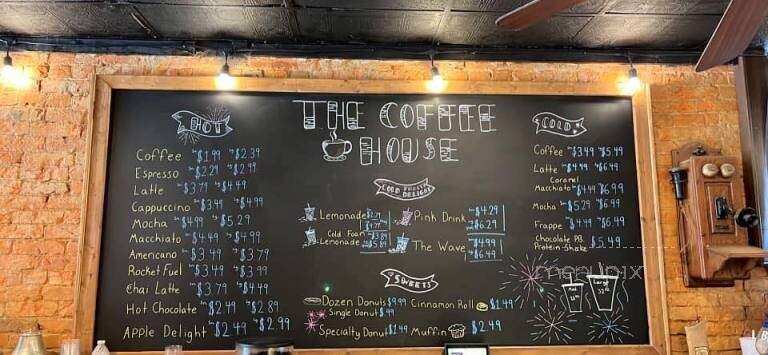 THE COFFEE
HOUSE
HOT
Coffee $1.99 $2.39
Espresso $2.29 $2.99
Latte $3.79 $4.49
Cappuccino $3.99 $4.99
Mocha $4.99 $5.29
Macchiato $4.49 $4.99
Americano $3.49 $3.79
Rocket Fuel $3.49 $3.99
Chai Latte $3.79 $4.49
Hot Chocolate $2.49 $2.89
APPle Delight $2.49 $2.99
COLD FROSTY
DELIGHT
Lemonade
Cold Foam
Lemonade $3.89 $5.89
Pink Drink $4.29
$6.29
The Wave $4.99
$6.49
SWEETS
Dozen Donuts $9.99 Cinnamon Roll $1.49
Single Donut $.99
Specialty Donut $1.49 Muffin $2.49
COLD
Coffee $3.49 $5.49
Latte $4.49 $6.49
Caramel
Macchiato $4.99 $6.99
Mocha $5.29 $6.49
Frappe $4.49 $6.49
Chocolate P.B.
Protein Shake $5.49
Large
menupix